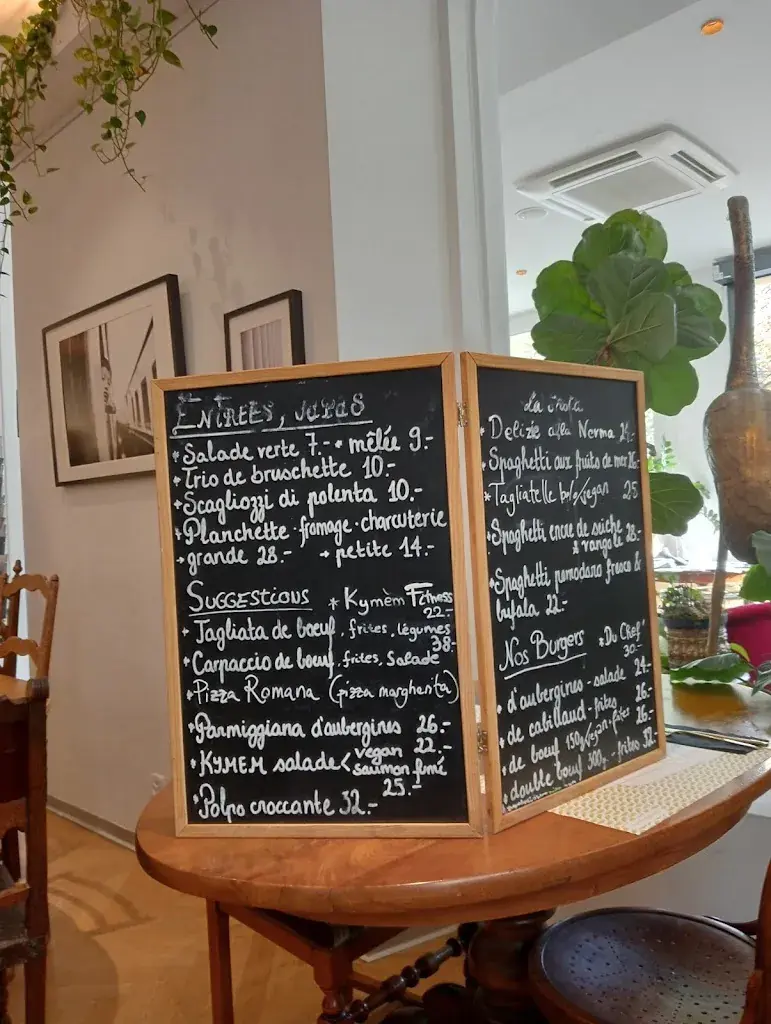 ENTRÉES, TAPAS
* Salade verte 7.- * mêlée 9.-
* Trio de bruschette 10.-
* Scagliozzi di polenta 10.-
* Planchette - fromage - charcuterie
→ grande 28.- → petite 14.-
SUGGESTIONS * Kymèm Fitness
22.-
* Tagliata de boeuf, frites, légumes
38.-
* Carpaccio de boeuf, frites, Salade
* Pizza Romana (pizza margherita)
* Parmiggiana d'aubergines 26.-
* KYMEM salade < vegan 22.-
saumon fumé
25.-
* Polpo croccante 32.-
La
* Delizie alla Norma
* Spaghetti aux fruits de mer
* Tagliatelle bolo/vegan 25
* Spaghetti encre de seiche
& vongole 28.-
* Spaghetti pomodoro fresco &
bufala 22.-
Nos Burgers * Du Chef
30.-
* d'aubergines - salade 24.-
* de cabillaud - frites 26.-
* de boeuf 150g/vegan - frites 26.-
* double boeuf 300g. - frites 32.-